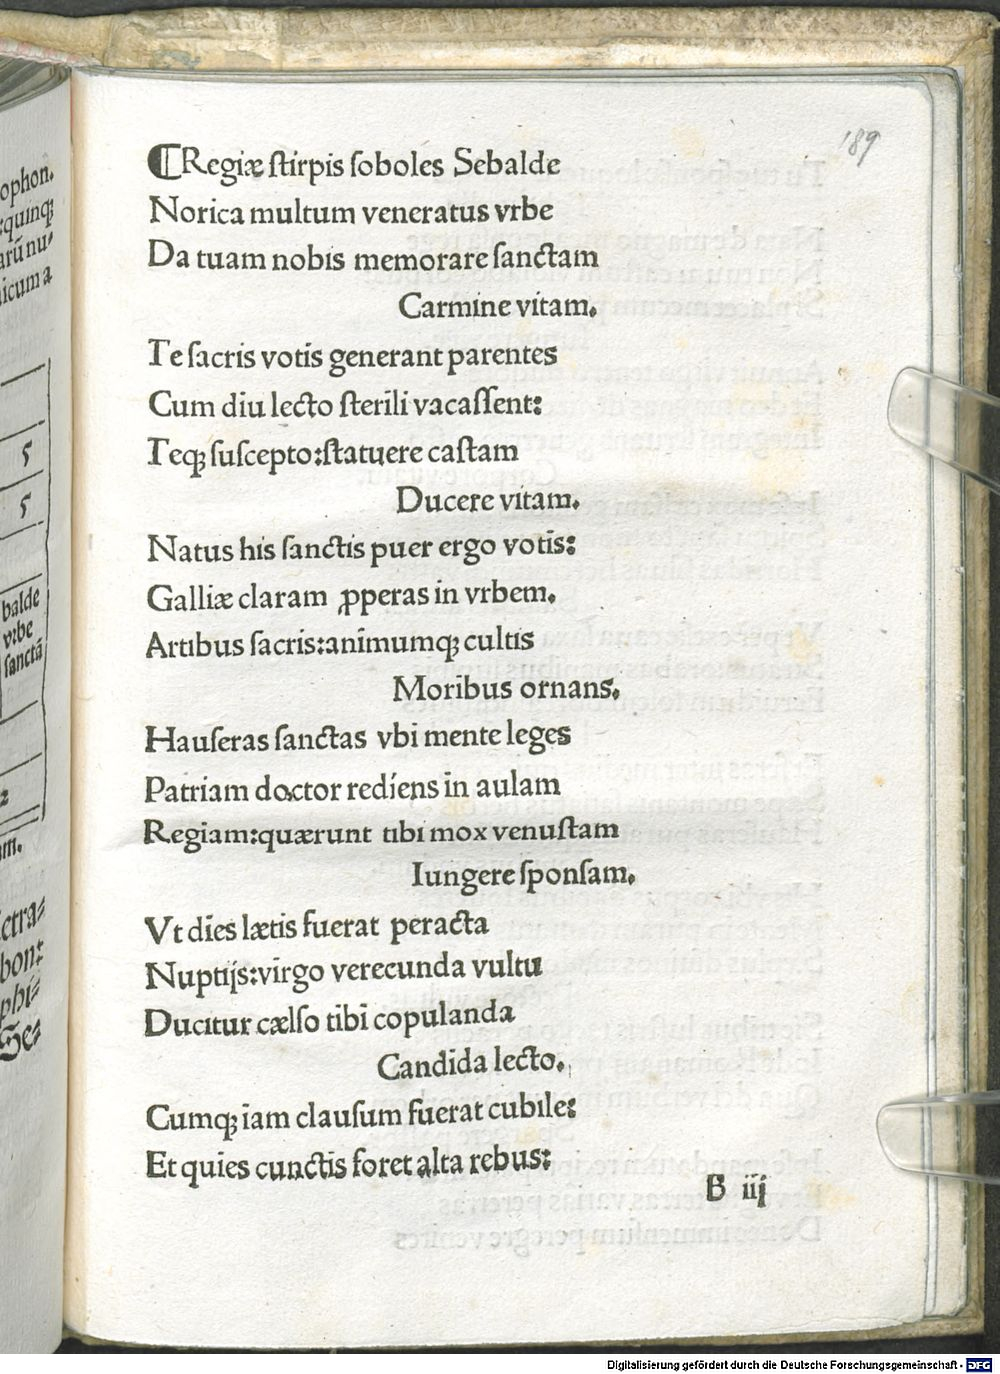 189
⸿Regiæ ſtirpis ſoboles Sebalde
Norica multum veneratus vrbe
Da tuam nobis memorare ſanctam
Carmine vitam.
Te ſacris votis generant parentes
Cum diu lecto ſterili vacaſſent:
Teqꝫ ſuſcepto:ſtatuere caſtam
Ducere vitam.
Natus his ſanctis puer ergo votis:
Galliæ claram ꝓperas in vrbem.
Artibus ſacris:animumqꝫ cultis
Moribus ornans.
Hauſeras ſanctas vbi mente leges
Patriam doctor rediens in aulam
Regiam:quærunt tibi mox venuſtam
Iungere ſponſam.
Vt dies lætis fuerat peracta
Nuptijs:virgo verecunda vultu
Ducitur cælſo tibi copulanda
Candida lecto.
Cumqꝫ iam clauſum fuerat cubile:
Et quies cunctis foret alta rebus:
B iij
ophon.
:quinqꝫ
arū nu-
icum a
5
5
balde
vrbe
ſanctā
2
m.
etra-
bon:
phi-
Se-
Digitalisierung gefördert durch die Deutsche Forschungsgemeinschaft - DFG